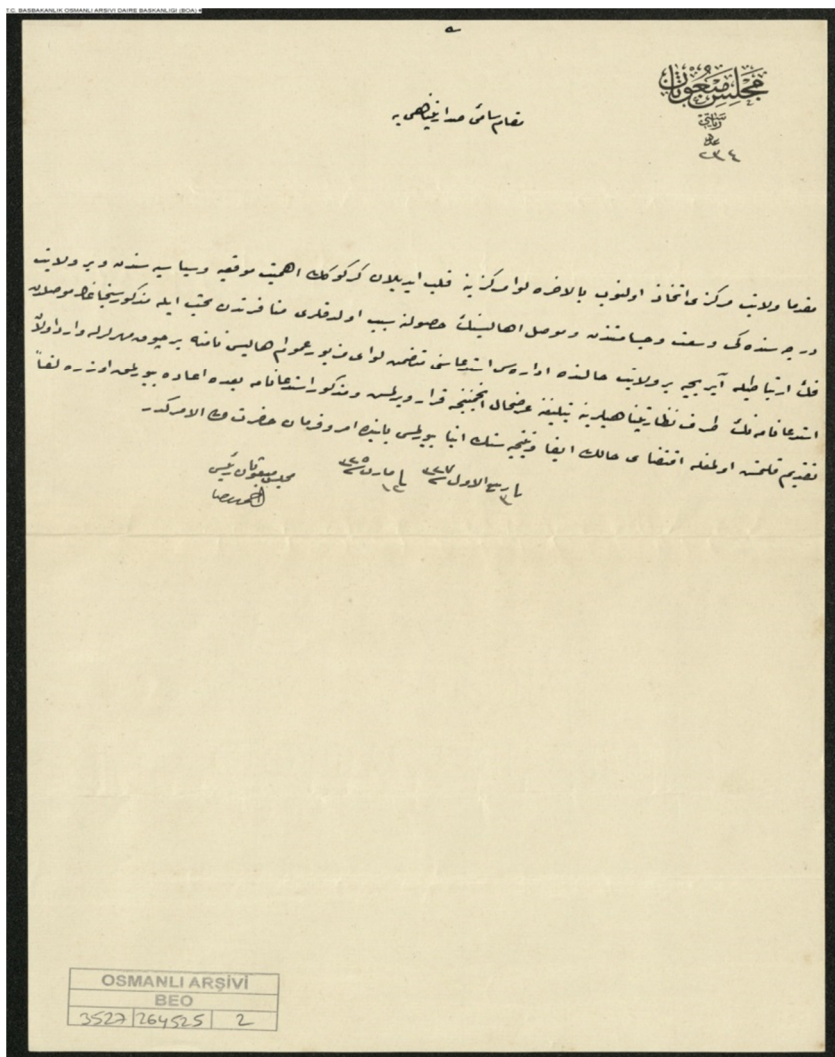 T.C. BASBAKANLIK OSMANLI ARSIVI DAIRE BASKANLIGI (BOA)
مجلس مبعوثان
ریاستی
عدد
٢٣٤
مقام سامئ صدارتپناهی یه
مقدما ولایت مرکزی اتخاذ اولنوب بالاخره لوا مرکزینه قلب ایدیلان کرکوکك اهمیت موقعیه وسیاسیه سندن وبر ولایت
درجه سنده کی وسعت وجسامتندن وموصل اهالیسنك حصولنه سبب اولدقلری منافرتدن بحث ایله مذکور سنجاغك موصلدن
فك ارتباطیله آیریجه بر ولایت حالنده اداره سی استدعاسنی متضمن لوای مزبور عموم اهالیسی نامنه برچوق مهرلرله وارد اولان
استدعانامه نك طرف نظارتپناهیلرینه تبلیغنه عرضحال انجمننجه قرار ویرلمش ومذکور استدعانامه بعده اعاده بیورلمق اوزره لفاً
تقدیم قلنمش اولمغله اقتضای حالك ایفا ونتیجه سنك انبا بیورلمسی بابنده امر وفرمان حضرت من له الامرکدر
ربیع الاول ٣٢٧ مارت ٣٢٥
مجلس مبعوثان رئیسی
احمد رضا
OSMANLI ARŞİVİ
BEO
3527 264525 2